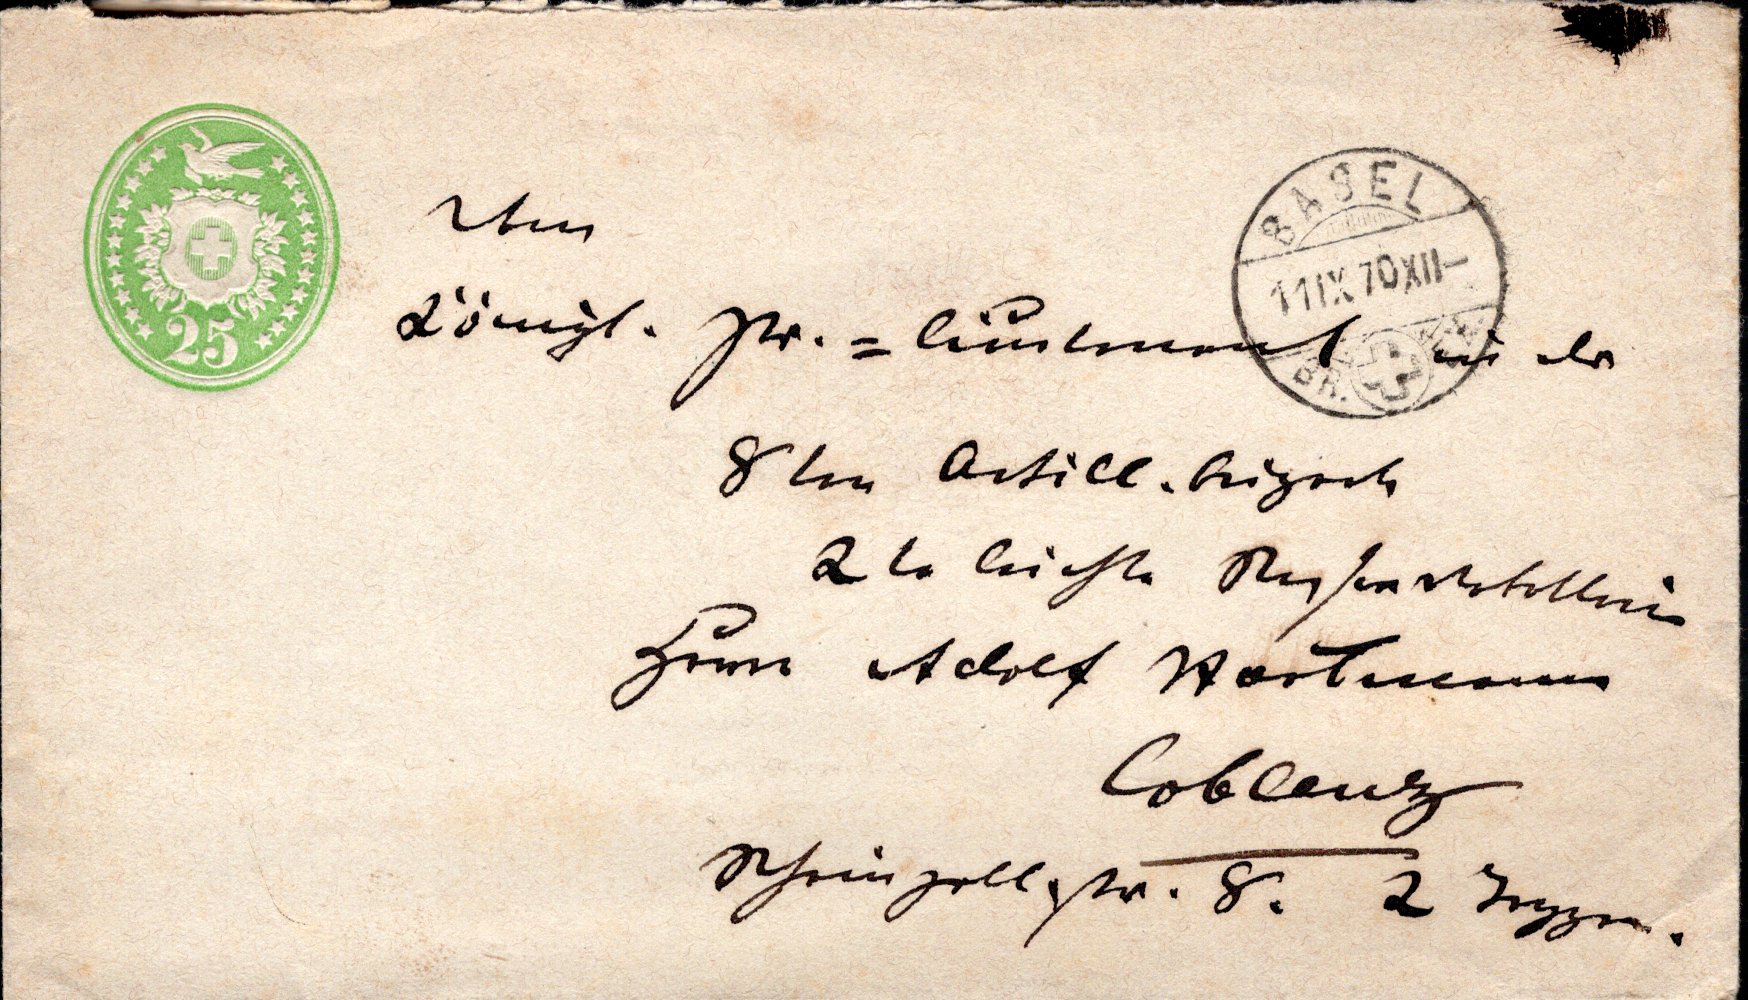 25
BASEL
11 IX 70 XII–
BR.
Dem
Königl. Pr.=Lieutenant in der
8ten Artill. brigade
2te leichte Reserve
Herrn Adolf Hartmann
Coblenz
Rheinzollstr. 8. 2 Treppen.